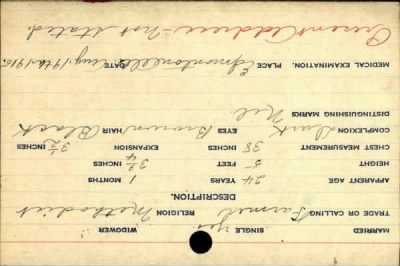 MARRIED SINGLE yes WIDOWER
TRADE OR CALLING Farmer RELIGION Methodist
DESCRIPTION.
APPARENT AGE 24 YEARS 1 MONTHS
HEIGHT 5 FEET 3 3/4 INCHES
CHEST MEASUREMENT 38 INCHES EXPANSION 3 1/2 INCHES
COMPLEXION Dark EYES Brown HAIR Black
DISTINGUISHING MARKS Nil
MEDICAL EXAMINATION. PLACE Edmonton Alta DATE Aug. 19th 1915.
Present Address - Not stated.